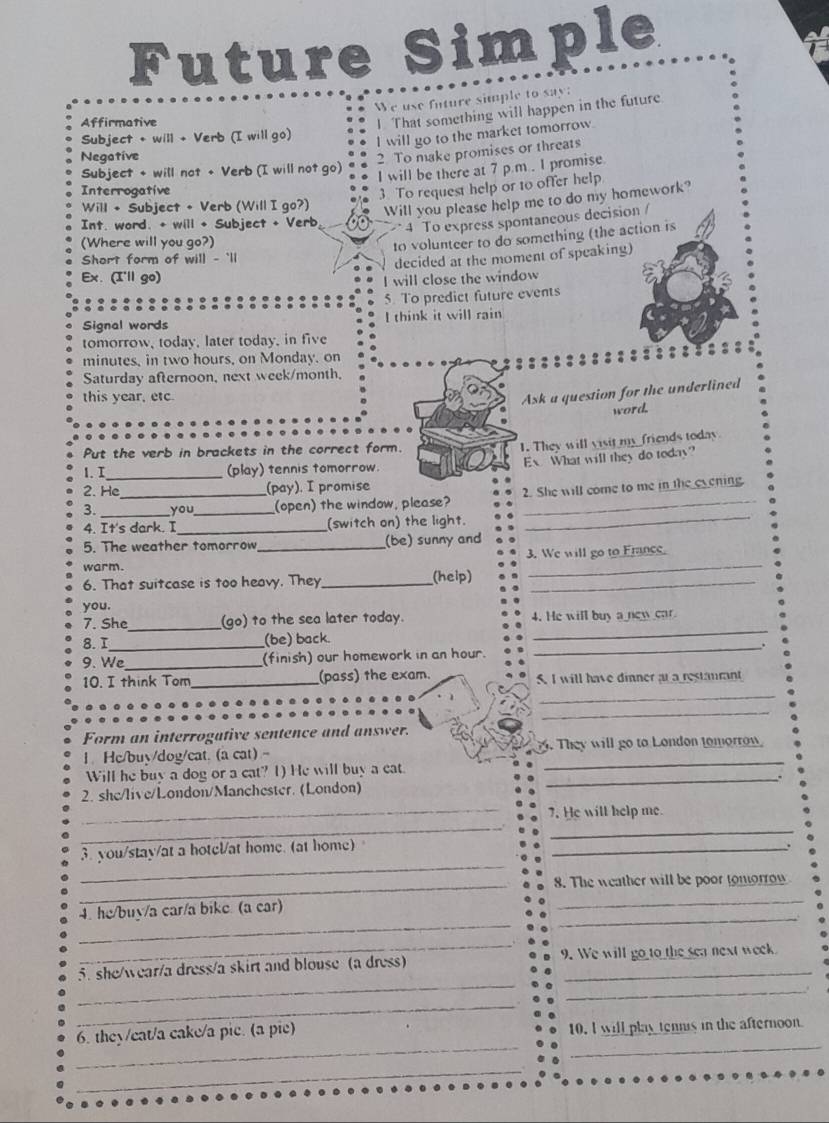 Future Simple
Affirmative
Subject + will + Verb (I will go)
Negative
Subject + will not + Verb (I will not go)
Interrogative
Will + Subject + Verb (Will I go?)
Int. word. + will + Subject + Verb
(Where will you go?)
Short form of will - 'll
Ex. (I'll go)
We use future simple to say:
1. That something will happen in the future.
I will go to the market tomorrow.
2. To make promises or threats
I will be there at 7 p.m.. I promise.
3. To request help or to offer help.
Will you please help me to do my homework?
4. To express spontaneous decision /
to volunteer to do something (the action is
decided at the moment of speaking)
I will close the window
5. To predict future events
I think it will rain
Signal words
tomorrow, today, later today, in five
minutes, in two hours, on Monday, on
Saturday afternoon, next week/month,
this year, etc.
Put the verb in brackets in the correct form.
1. I__________ (play) tennis tomorrow.
2. He__________(pay). I promise
3. ______you________(open) the window, please?
4. It's dark. I__________(switch on) the light.
5. The weather tomorrow__________(be) sunny and
warm.
6. That suitcase is too heavy. They__________(help)
you.
7. She________(go) to the sea later today.
8. I__________(be) back.
9. We__________(finish) our homework in an hour.
10. I think Tom__________(pass) the exam.
Form an interrogative sentence and answer.
1. He/buy/dog/cat. (a cat) -
Will he buy a dog or a cat? 1) He will buy a cat.
2. she/live/London/Manchester. (London)
3. you/stay/at a hotel/at home. (at home)
4. he/buy/a car/a bike. (a car)
5. she/wear/a dress/a skirt and blouse (a dress)
6. they/eat/a cake/a pie. (a pie)
Ask a question for the underlined
word.
1. They will visit my friends today.
Ex. What will they do today?
2. She will come to me in the evening.
3. We will go to France.
4. He will buy a new car.
5. I will have dinner at a restaurant
6. They will go to London tomorrow.
7. He will help me.
8. The weather will be poor tomorrow.
9. We will go to the sea next week.
10. I will play tennis in the afternoon.